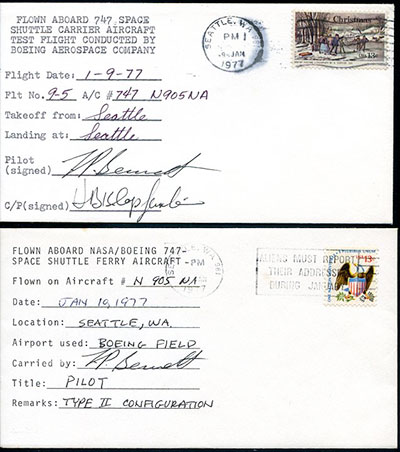 FLOWN ABOARD 747 SPACE
SHUTTLE CARRIER AIRCRAFT
TEST FLIGHT CONDUCTED BY
BOEING AEROSPACE COMPANY
SEATTLE, WA
PM
JAN
1977
Christmas
USA 13c
Flight Date: 1-9-77
Flt No. 9-5 A/C # 747 N905NA
Takeoff from: Seattle
Landing at: Seattle
Pilot
(signed)
C/P(signed)
FLOWN ABOARD NASA/BOEING 747-
SPACE SHUTTLE FERRY AIRCRAFT-
PM
ALIENS MUST REPORT
THEIR ADDRESS
DURING JAN
13c
Flown on Aircraft # N 905 NA
Date: JAN 10, 1977
Location: SEATTLE, WA.
Airport used: BOEING FIELD
Carried by:
Title: PILOT
Remarks: TYPE II CONFIGURATION